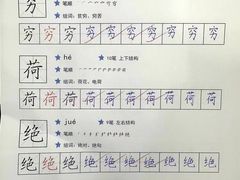 穷
笔顺
组词：贫穷、穷苦
穷 穷 穷 穷 穷 穷 穷 穷 穷
荷 hé 10笔 上下结构
笔顺
组词：荷花、电荷
荷 荷 荷 荷 荷 荷 荷 荷 荷 荷
绝 jué 9笔 左右结构
笔顺
组词：绝对、绝句
绝 绝 绝 绝 绝 绝 绝 绝 绝 绝